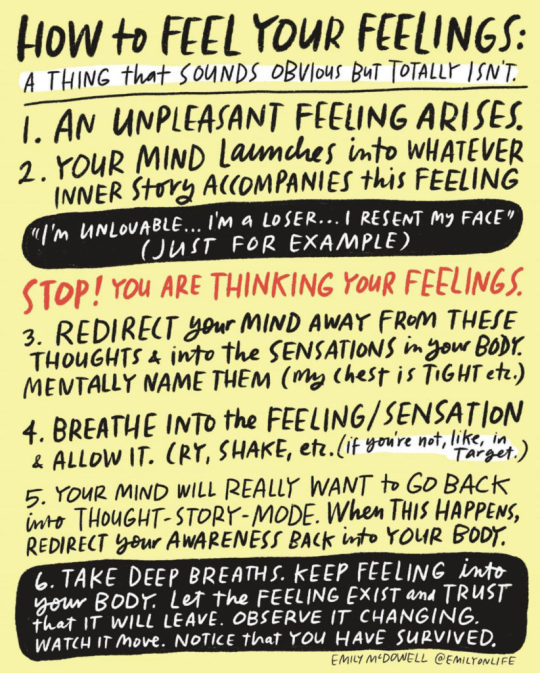 HOW to FEEL YOUR FEELINGS:
A THING that SOUNDS OBVIOUS BUT TOTALLY ISN'T.
1. AN UNPLEASANT FEELING ARISES.
2. YOUR MIND Launches into WHATEVER
INNER Story ACCOMPANIES this FEELING
"I'm UNLOVABLE... I'm a LOSER... I RESENT my FACE"
(JUST FOR EXAMPLE)
STOP! YOU ARE THINKING YOUR FEELINGS.
3. REDIRECT your MIND AWAY FROM THESE
THOUGHTS & into the SENSATIONS in your BODY.
MENTALLY NAME THEM (my chest is TIGHT etc.)
4. BREATHE INTO the FEELING/SENSATION
& ALLOW IT. CRY, SHAKE, etc. (if you're not, like, in
Target.)
5. YOUR MIND WILL REALLY WANT to GO BACK
into THOUGHT-STORY-MODE. When THIS HAPPENS,
REDIRECT your AWARENESS BACK into YOUR BODY.
6. TAKE DEEP BREATHS. KEEP FEELING into
your BODY. Let the FEELING EXIST and TRUST
that IT WILL LEAVE. OBSERVE IT CHANGING.
WATCH IT Move. NOTICE that YOU HAVE SURVIVED.
EMILY McDOWELL @EMILYONLIFE